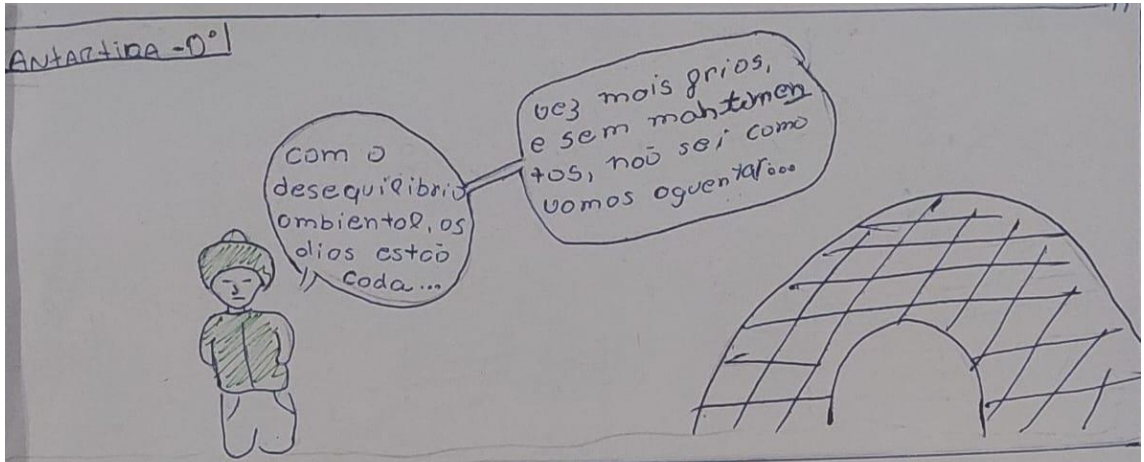 ANTARTIDA -0°
com o
desequilibrio
ambiental, os
dias estão
cada...
vez mais frios,
e sem mantimen
tos, não sei como
vamos aguentar...